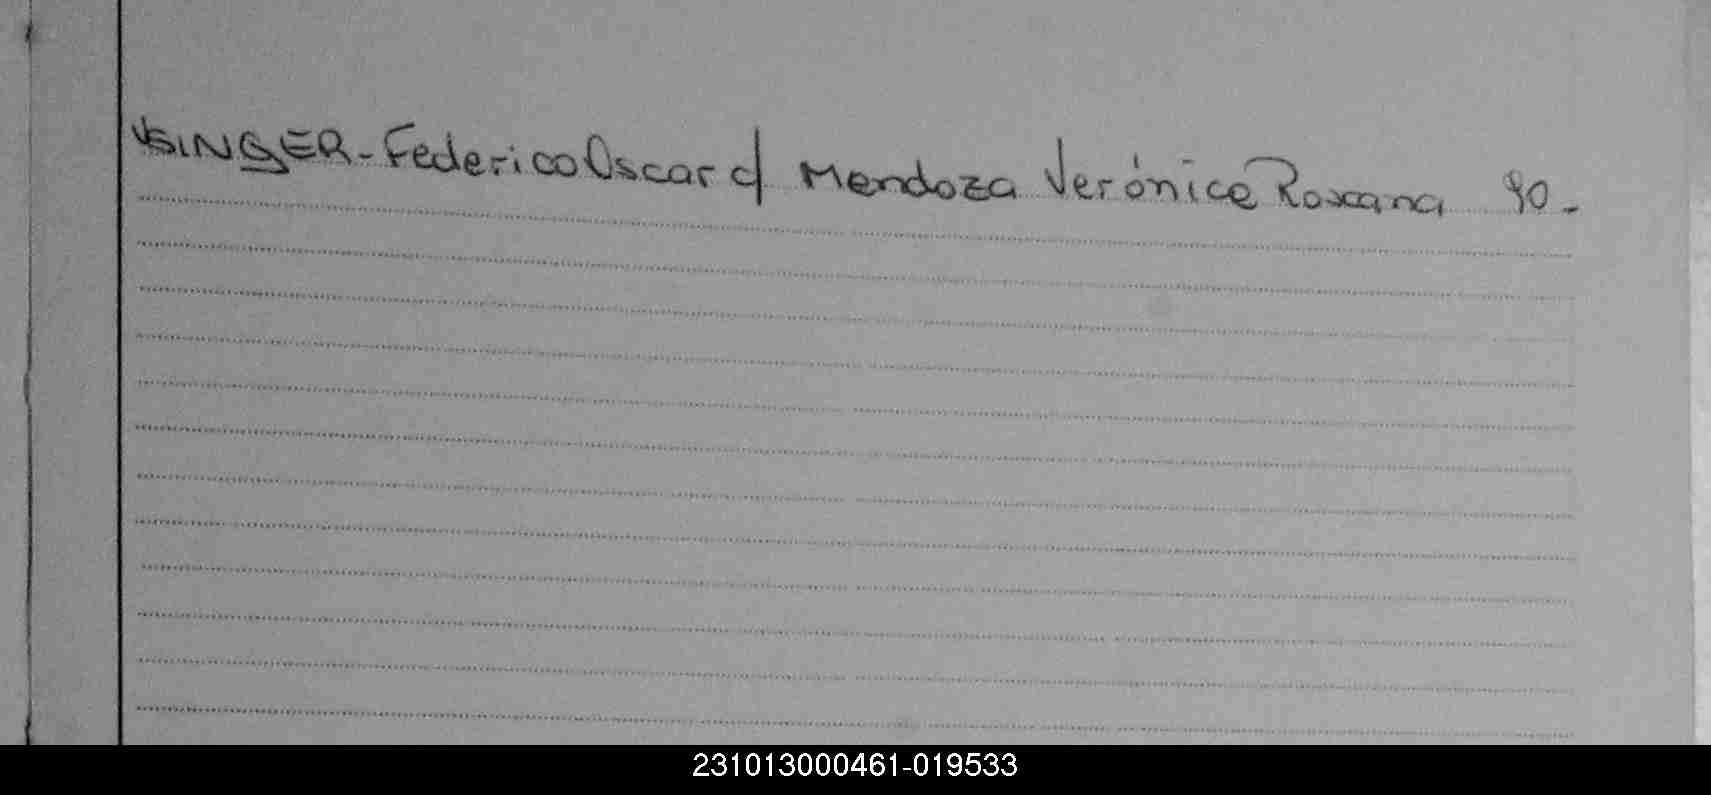 USINGER - Federico Oscar c/ Mendoza Verónica Roxana 90 -
231013000461-019533